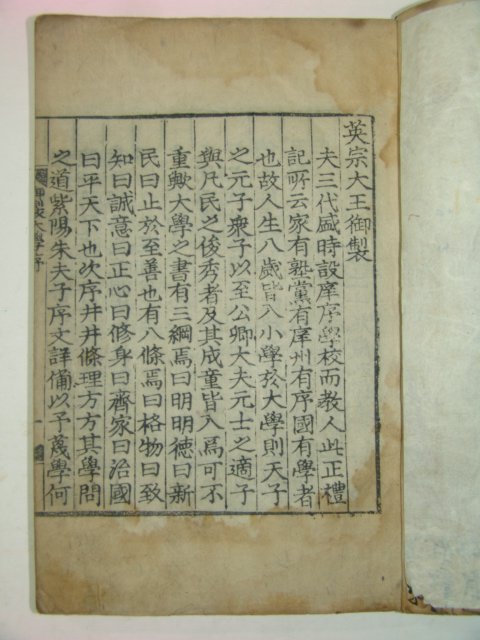 英宗大王御製
夫三代盛時設庠序學校而敎人此正禮
記所云家有塾黨有庠州有序國有學者
也故人生八歲皆入小學於大學則天子
之元子衆子以至公卿大夫元士之適子
與凡民之俊秀者及其成童皆入焉可不
重歟大學之書有三綱焉曰明明德曰新
民曰止於至善也有八條焉曰格物曰致
知曰誠意曰正心曰修身曰齊家曰治國
曰平天下也次序井井條理方方其學問
之道紫陽朱夫子序文詳備以予蔑學何
御製大學序